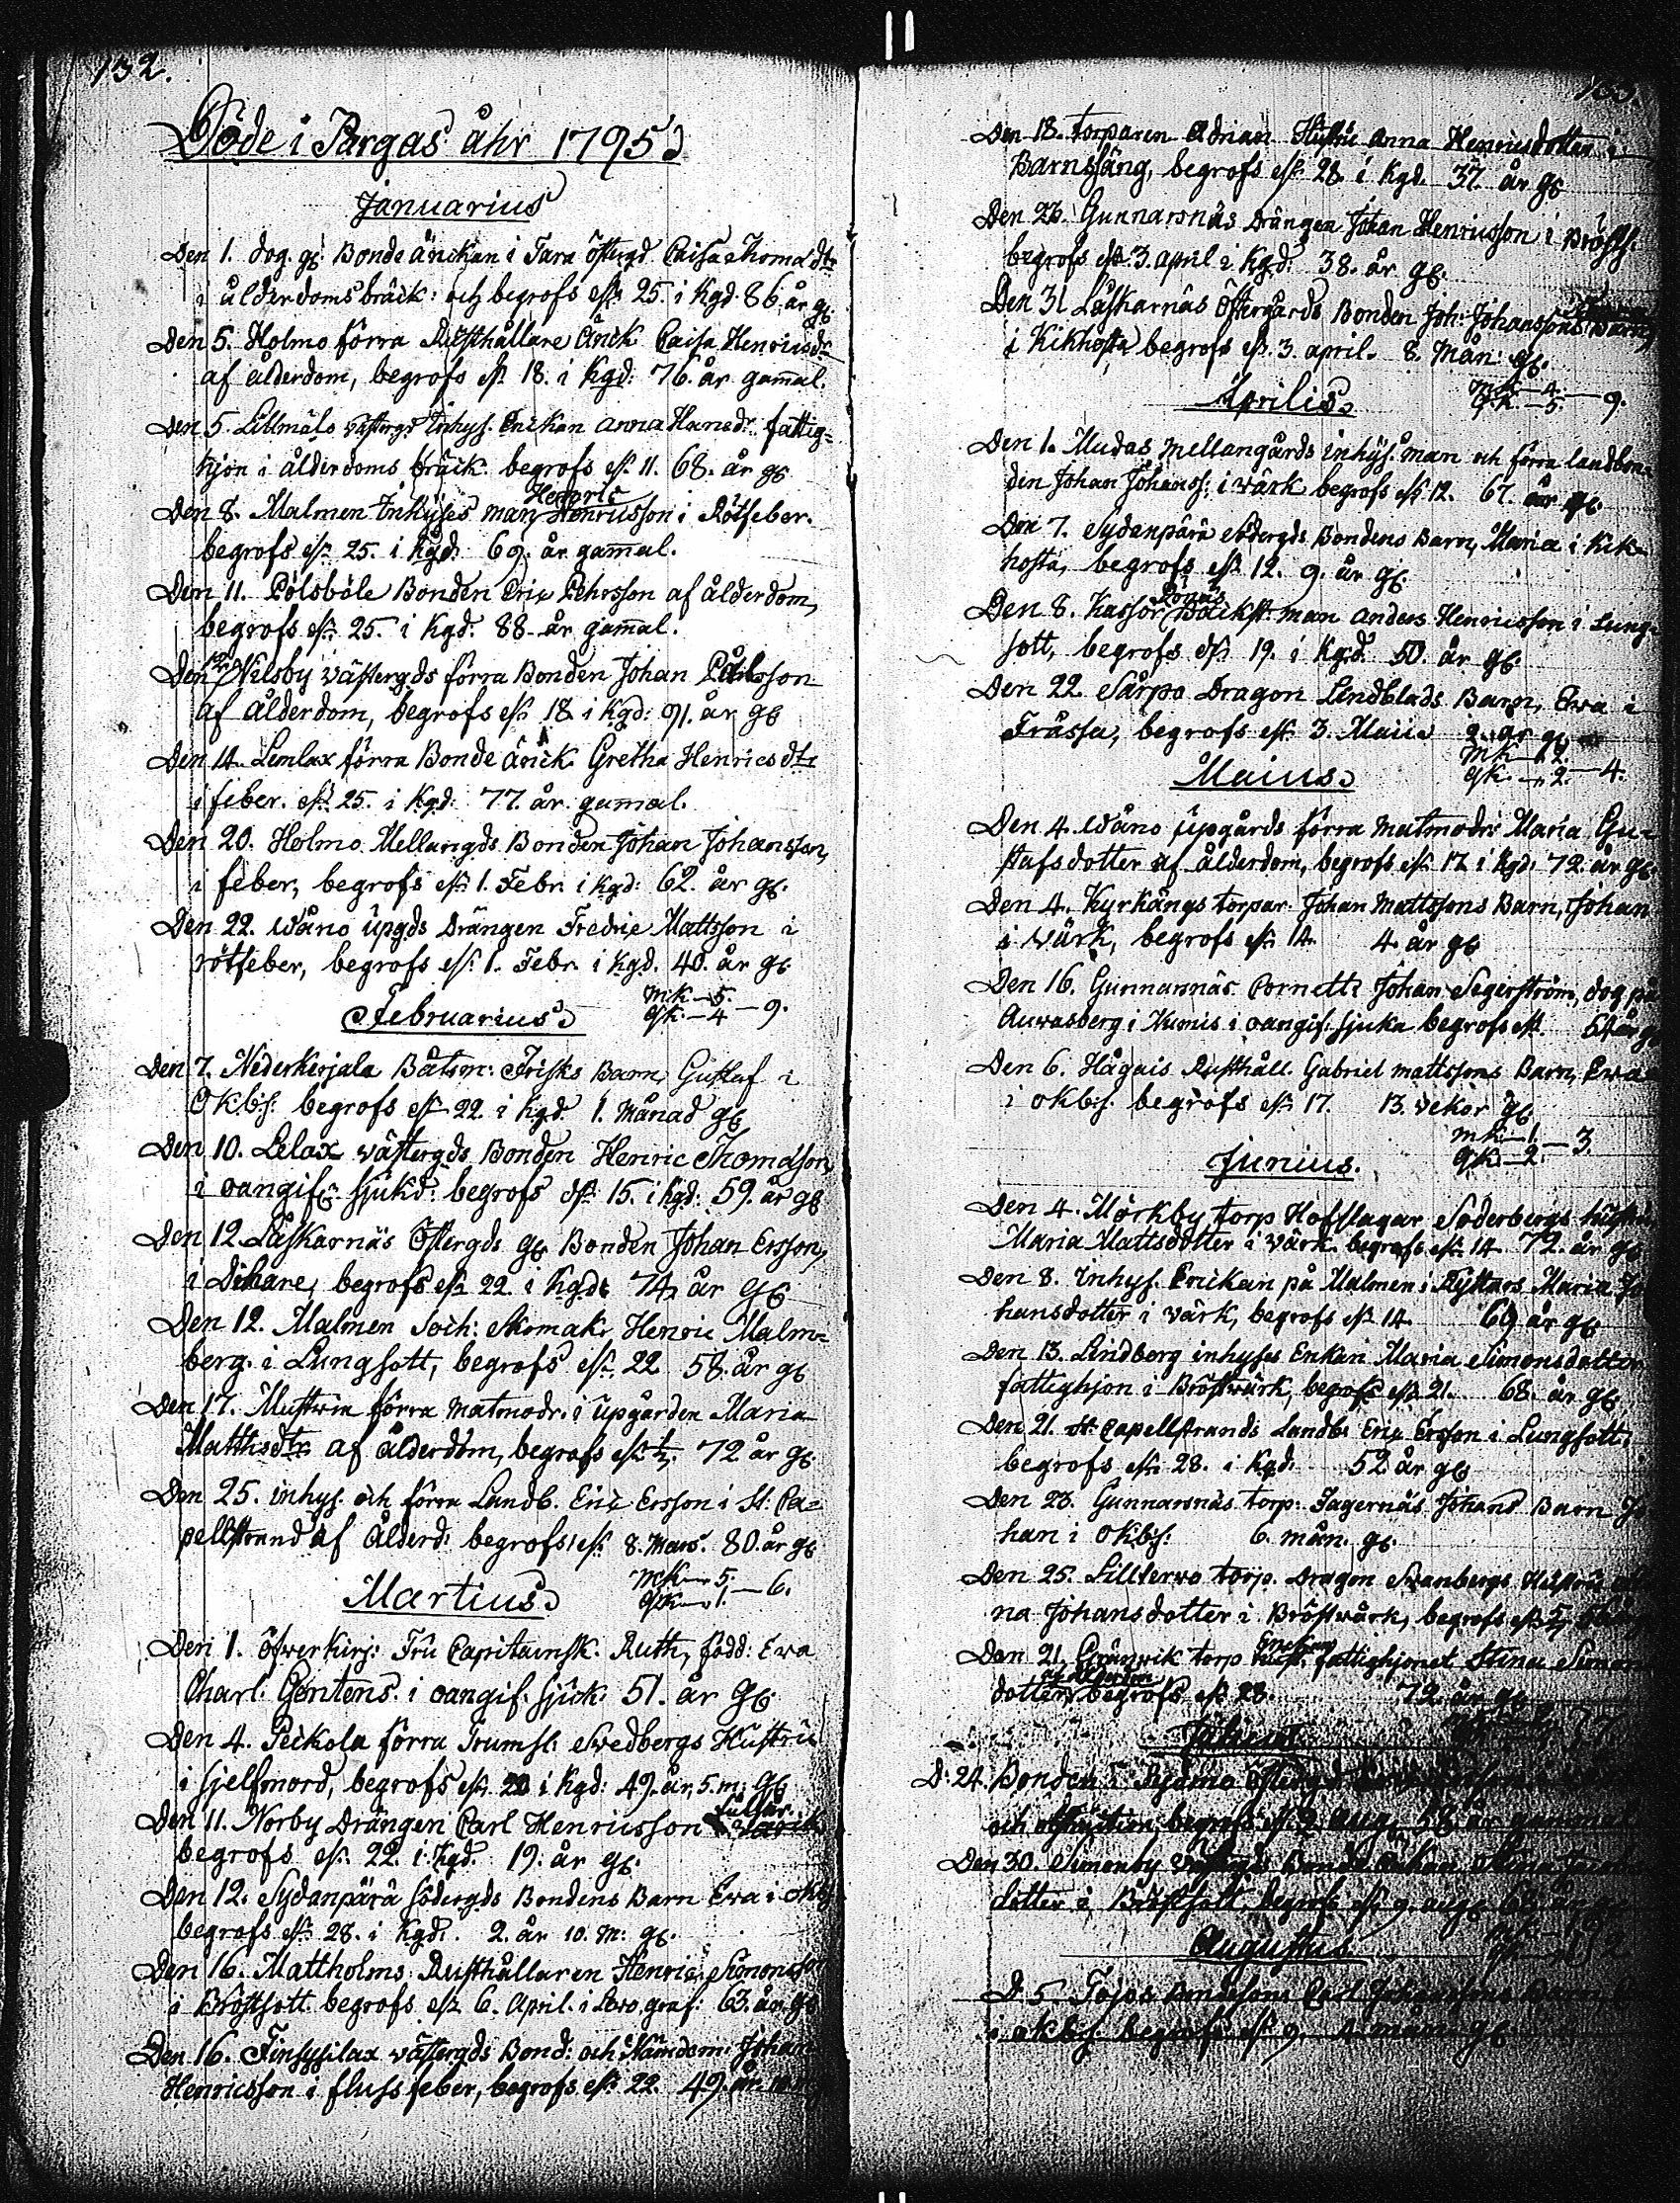 132.
Döde i Pargas åhr 1795
Januarius
Den 1. dog. gl. Bonde änckan i Tara Östergd Caisa Thomadtr
i ålderdoms bräck: och begrofs eft. 25. i Kgd. 86. år gl.
Den 5. Holmo förra Rusthållare Änck. Caisa Henricsdr
af ålderdom, begrofs eft. 18. i Kgd: 76. år gam̅al.
Den 5. Lillmälo västergds Inhys. Enckan Anna Hansdr fattig=
hjon i ålderdoms bräck. begrofs eft. 11. 68. år gl.
Den 8. Malmen Inhyses man Henric Henricsson i Rötfeber.
begrofs eft. 25. i Kgd. 69. år gam̅al.
Den 11. Pölsböle Bonden Eric Pehrsson af ålderdom,
begrofs eft. 25. i Kgd. 88. år gam̅al.
Den 12. Nilsby västergds förra Bonden Johan Påhlsson
af ålderdom, begrofs eft. 18. i Kgd: 91. år gl
Den 14. Lemlax förra Bonde änck. Gretha Henricsdtr
i feber. eft. 25. i Kgd: 77. år gamal.
Den 20. Holmo Mellangds Bonden Johan Johansson,
i feber, begrofs eft. 1. Febr. i Kgd: 62. år gl.
Den 22. Våno Upgds Drängen Fredric Mattsson i
rötfeber, begrofs eft. 1. Febr. i Kgd. 40. år gl.
Mk—5.
Februarius Qk.—4 —9.
Den 7. Nederkirjala Båtsm: Frisks Barn, Gustaf i
Okb:s. begrofs eft. 22. i Kgd 1. Månad gl
Den 10. Lelax västergds Bonden Henric Thomasson
i oangifn sjukd: begrofs eft. 15. i Kgd: 59. år gl
Den 12. Låskarnäs Östergds gl. Bonden Johan Ersson,
i begrofs eft. 22. i Kgd. 74. år gl
Den 12. Malmen Soch: Skomak. Henric Malm=
berg. i Lungsott, begrofs eft. 22 58. år gl
Den 17. Mustfin förra matmodr. i Upgården Maria
Mattsdtr af ålderdom, begrofs eft. 72 år gl.
Den 25. inhys. och förra Landb. Eric Ersson i St: Ca=
pellstrand af ålderd: begrofs eft. 8. Mars. 80. år gl
Mk—5.
Martius Qk—1. —6.
Den 1. Öfverkirj: Fru Capitainsk. Ruth, född: Eva
Charl. i oangif. sjuk: 51. år gl.
Den 4. Peckola förra Trumsl: Svedbergs Hustru
i sjelfmord, begrofs eft. 20 i Kgd: 49. år, 5. m: gl
Den 11. Norby Drängen Carl Henricsson
begrofs eft. 22. i Kgd. 19. år gl.
Den 12. Sydänpärä Södergds Bondens Barn Eva i Okb:
begrofs eft. 28. i Kgd. 2. år 10. m: gl.
Den 16. Mattholms Rusthållaren Henric Simonsson
i Bröstsott. begrofs eft. 6. April. i graf: 63. år gl
Den 16. Finsysilax västergds Bond: och Nämdem: Johan
Henricsson i fluss feber, begrofs eft. 22. 49. år
133.
Den 18. Torparen Adrians Hustru Anna Henricsdotter i
Barnsäng, begrofs eft. 28. i Kgd. 37. år gl
Den 26. Gunnarsnäs Drängen Johan Henricsson i Bröst
begrofs eft. 3. April i Kgd: 38. år gl.
Den 31 Låskarnäs Östergårds Bonden Joh: Johanssons Barn
i Kikhosta begrofs eft. 3. April. 8. Mån: gl.
Mk—4.
Aprilis Qk.—5. —9.
Den 1. Mudas mellangårds inhys. man och förra landbon=
den Johan Johanss: i värk begrofs eft. 12. 67. år gl.
Den 7. Sydänpärä Södergds Bondens Barn, Maria i Kik=
hosta, begrofs eft. 12. 9. år gl.
Den 8. Kassor Backst. man Anders Henricsson i Lung=
sott, begrofs eft. 19. i Kgd. 50. år gl.
Den 22. Sårpo Dragon Lindblads Barn, Eva i
Frässa, begrofs eft. 3. Maii 2. år gl
Mk—2.
Maius Qk.—2. —4.
Den 4. Våno Upgårds förra matmodr: Maria Gu=
stafsdotter af ålderdom, begrofs eft. 17. i Kgd: 72. år gl.
Den 4. Kyrkängs torpar: Johan Mattssons Barn, Johan
i värk, begrofs eft. 14. 4. år gl
Den 16. Gunnarsnäs Cornett: Johan Segerström, dog på
Auvasberg i Numis i oangif: sjuka begrofs eft. 54 år
Den 6. Hågais Rusthåll. Gabriel Mattssons Barn, Eva
i okb:s. begrofs eft. 17. 13. vekor gl.
Mk—1.
Junius. Qk—2. —3.
Den 4. Mörkby torp Hofslagar Söderbergs
Maria Mattsdotter i värk. begrofs eft. 14. 72. år gl
Den 8. Inhys. Enckan på Malmen: Ryttars Maria Jo
hansdotter i värk, begrofs eft. 14. 69 år gl
Den 13. Lindberg inhyses Enkan Maria Simonsdotter
fattighjon i Bröstvärk, begrofs eft. 21. 68. år gl.
Den 21. St. Capellstrands Landb: Eric Ersson i Lungsott,
begrofs eft. 28. i Kgd. 52. år gl
Den 23. Gunnarsnäs torp: Jagernäs Johans Barn Jo
han i Okb:s. 6. mån. gl.
Den 25. Lilltervo torp. Dragon Svanbergs Hustru
na Johansdotter i Bröstvärk, begrofs eft. 5.
Den 21, Gränvik torp Enckan fattighjonet Stina Simons
dotter af ålderdom begrofs eft. 28. 72. år gl
Julius
D: 24. Bonden i Östergd
och begrofs eft. 2. Aug. 58. år gammal
Den 30. Simonby
dotter i Bröstsott, begrofs eft. 9. Aug. 68. år
Augustus
D. 5 Carl Johanssons Barn,
i okb:s. begrofs eft. 9. mån gl.